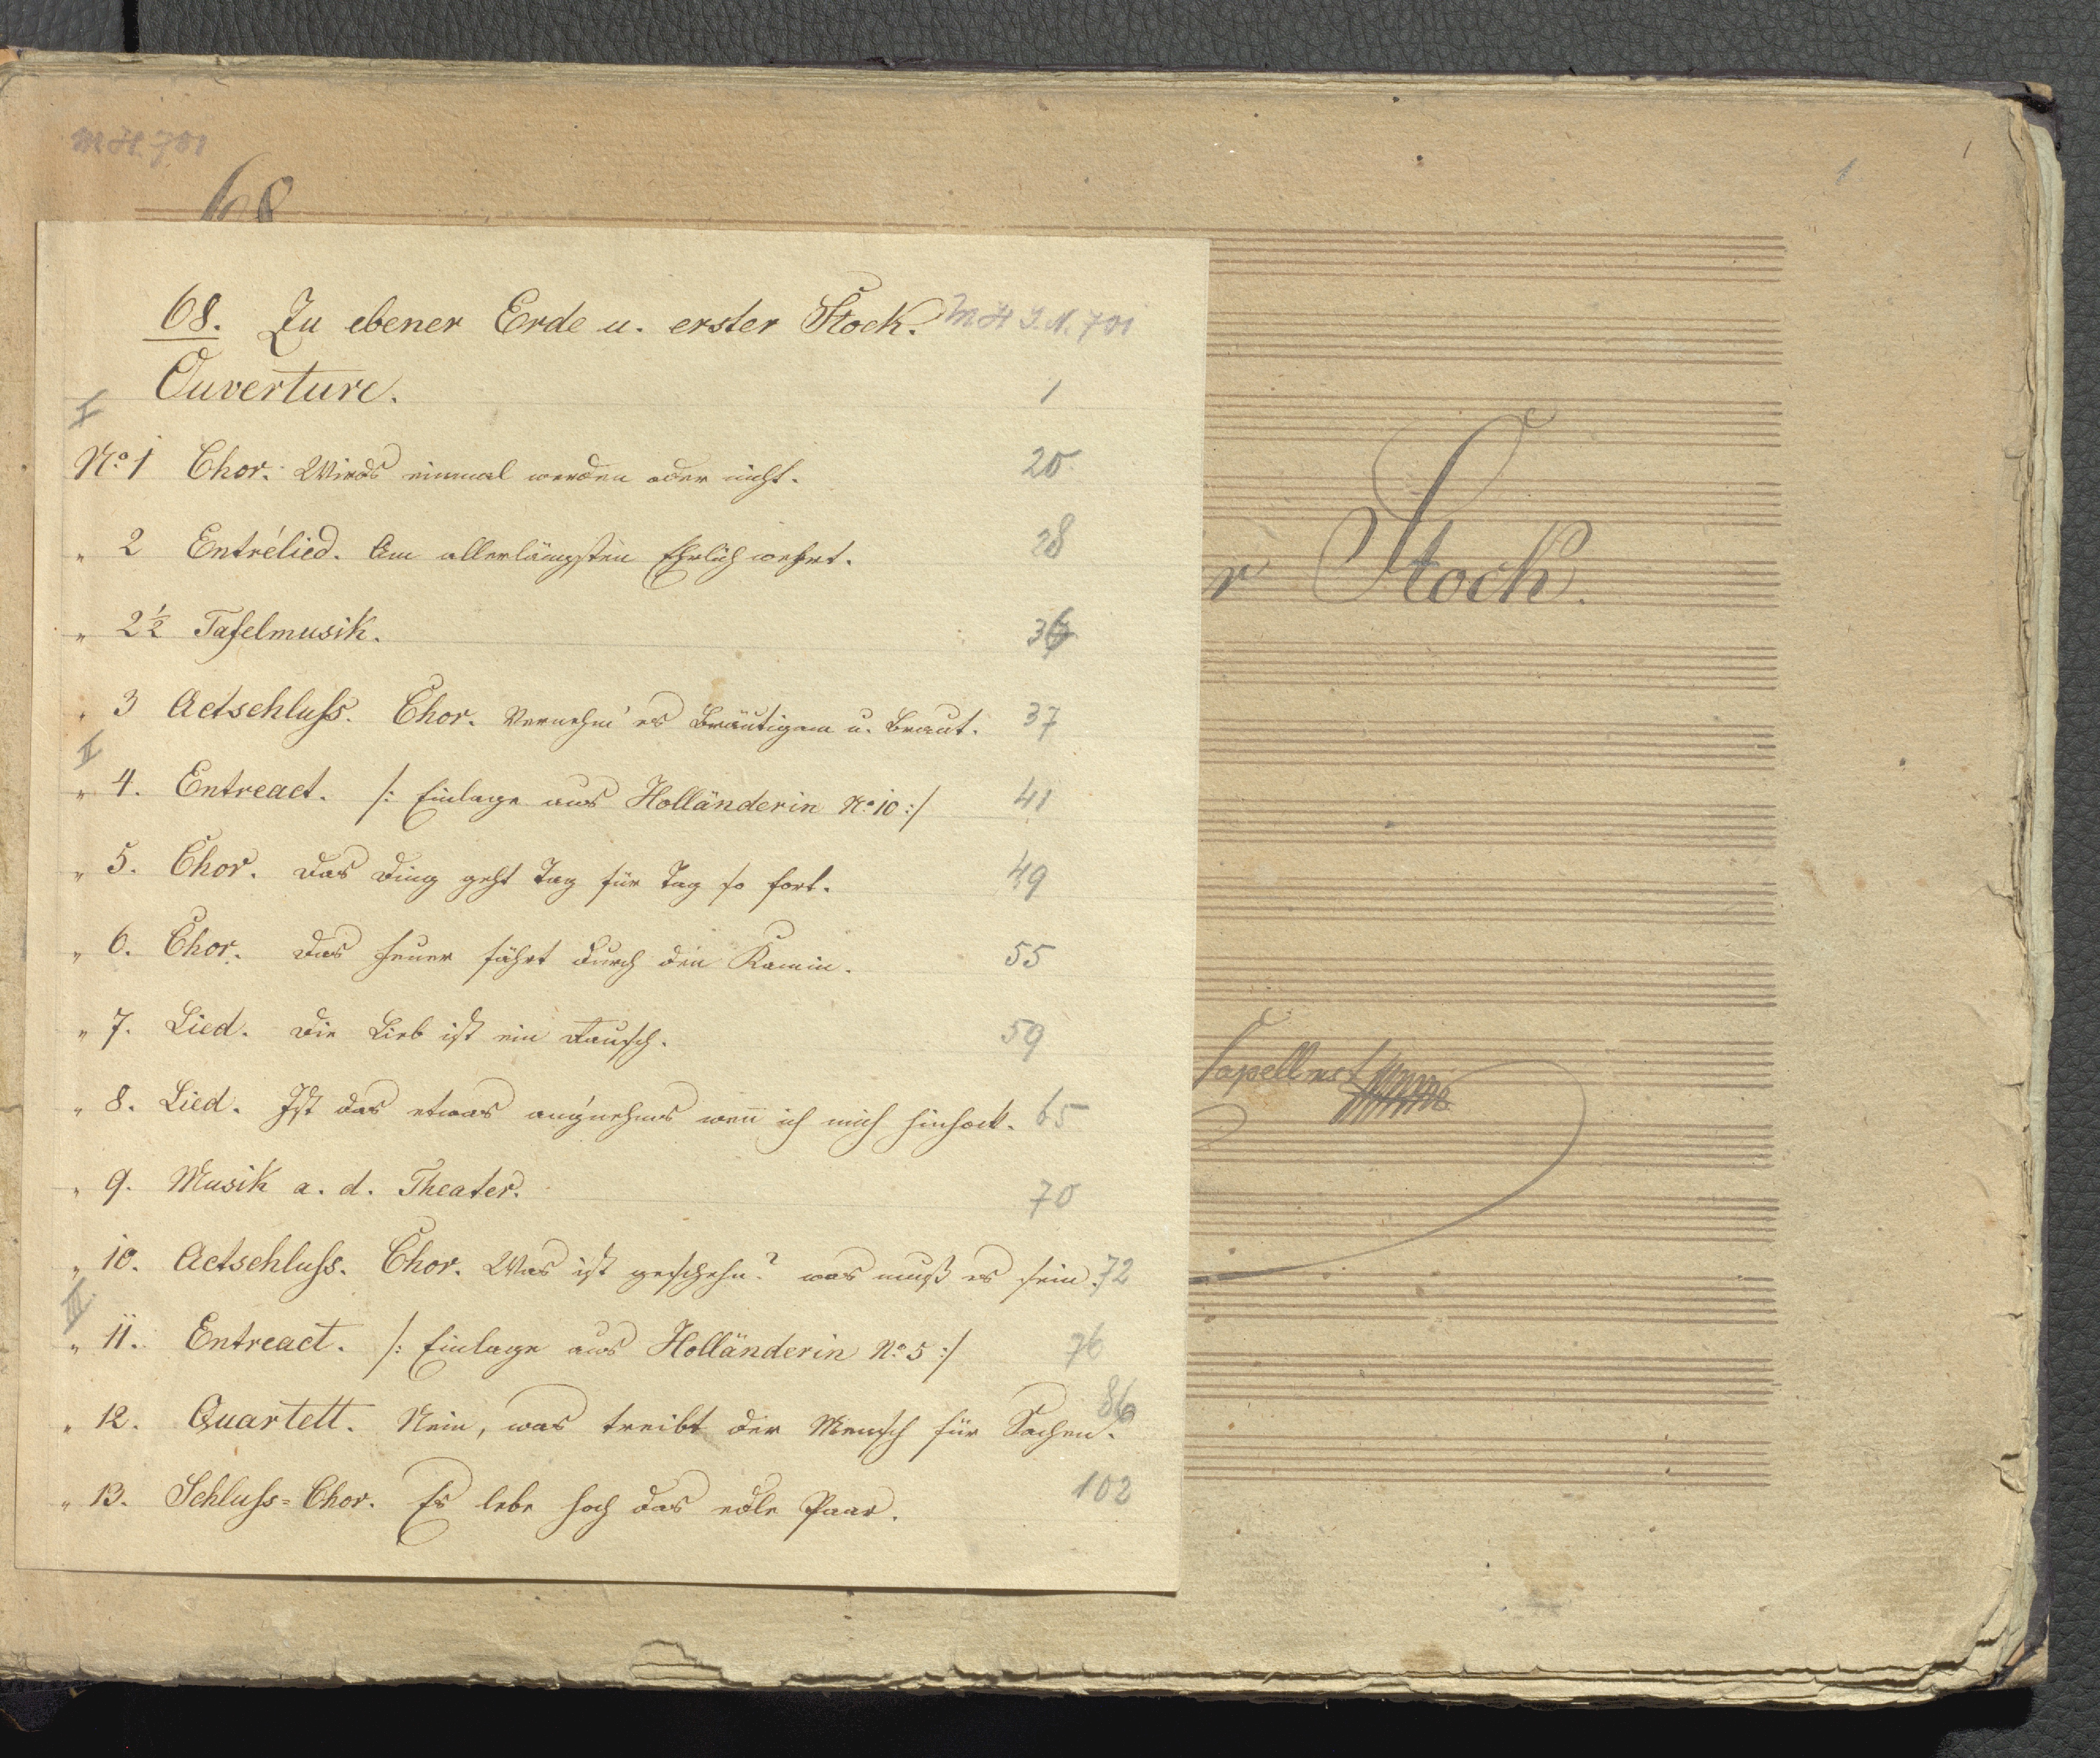 MH 701
1
1
68
68. Zu ebener Erde u. erster Stock. MH I.N. 701
Ouverture. 1
I
No 1 Chor. Wirds einmal werden oder nicht. 20
" 2 Entrélied. Am allerlängsten Ehrlich wehrt. 28
" 2½ Tafelmusik. 36
" 3 Actschluss. Chor. Vernehm' es Bräutigam u. Braut. 37
II
" 4. Entreact. /: Einlage aus Holländerin No 10 :/ 41
" 5. Chor. Das Ding geht Tag für Tag so fort. 49
" 6. Chor. Das Feuer fährt durch den Kamin. 55
" 7. Lied. Die Lieb ist ein Rausch. 59
" 8. Lied. Ist das etwas ang'nehms weñ ich mich hinhock. 65
" 9. Musik a. d. Theater. 70
" 10. Actschluss. Chor. Was ist geschehn? was muß es sein. 72
III.
" 11. Entreact. /: Einlage aus Holländerin No 5 :/ 76
" 12. Quartett. Nein, was treibt der Mensch für Sachen. 86
" 13. Schluss=Chor. Es lebe hoch das edle Paar. 102
r Stock.